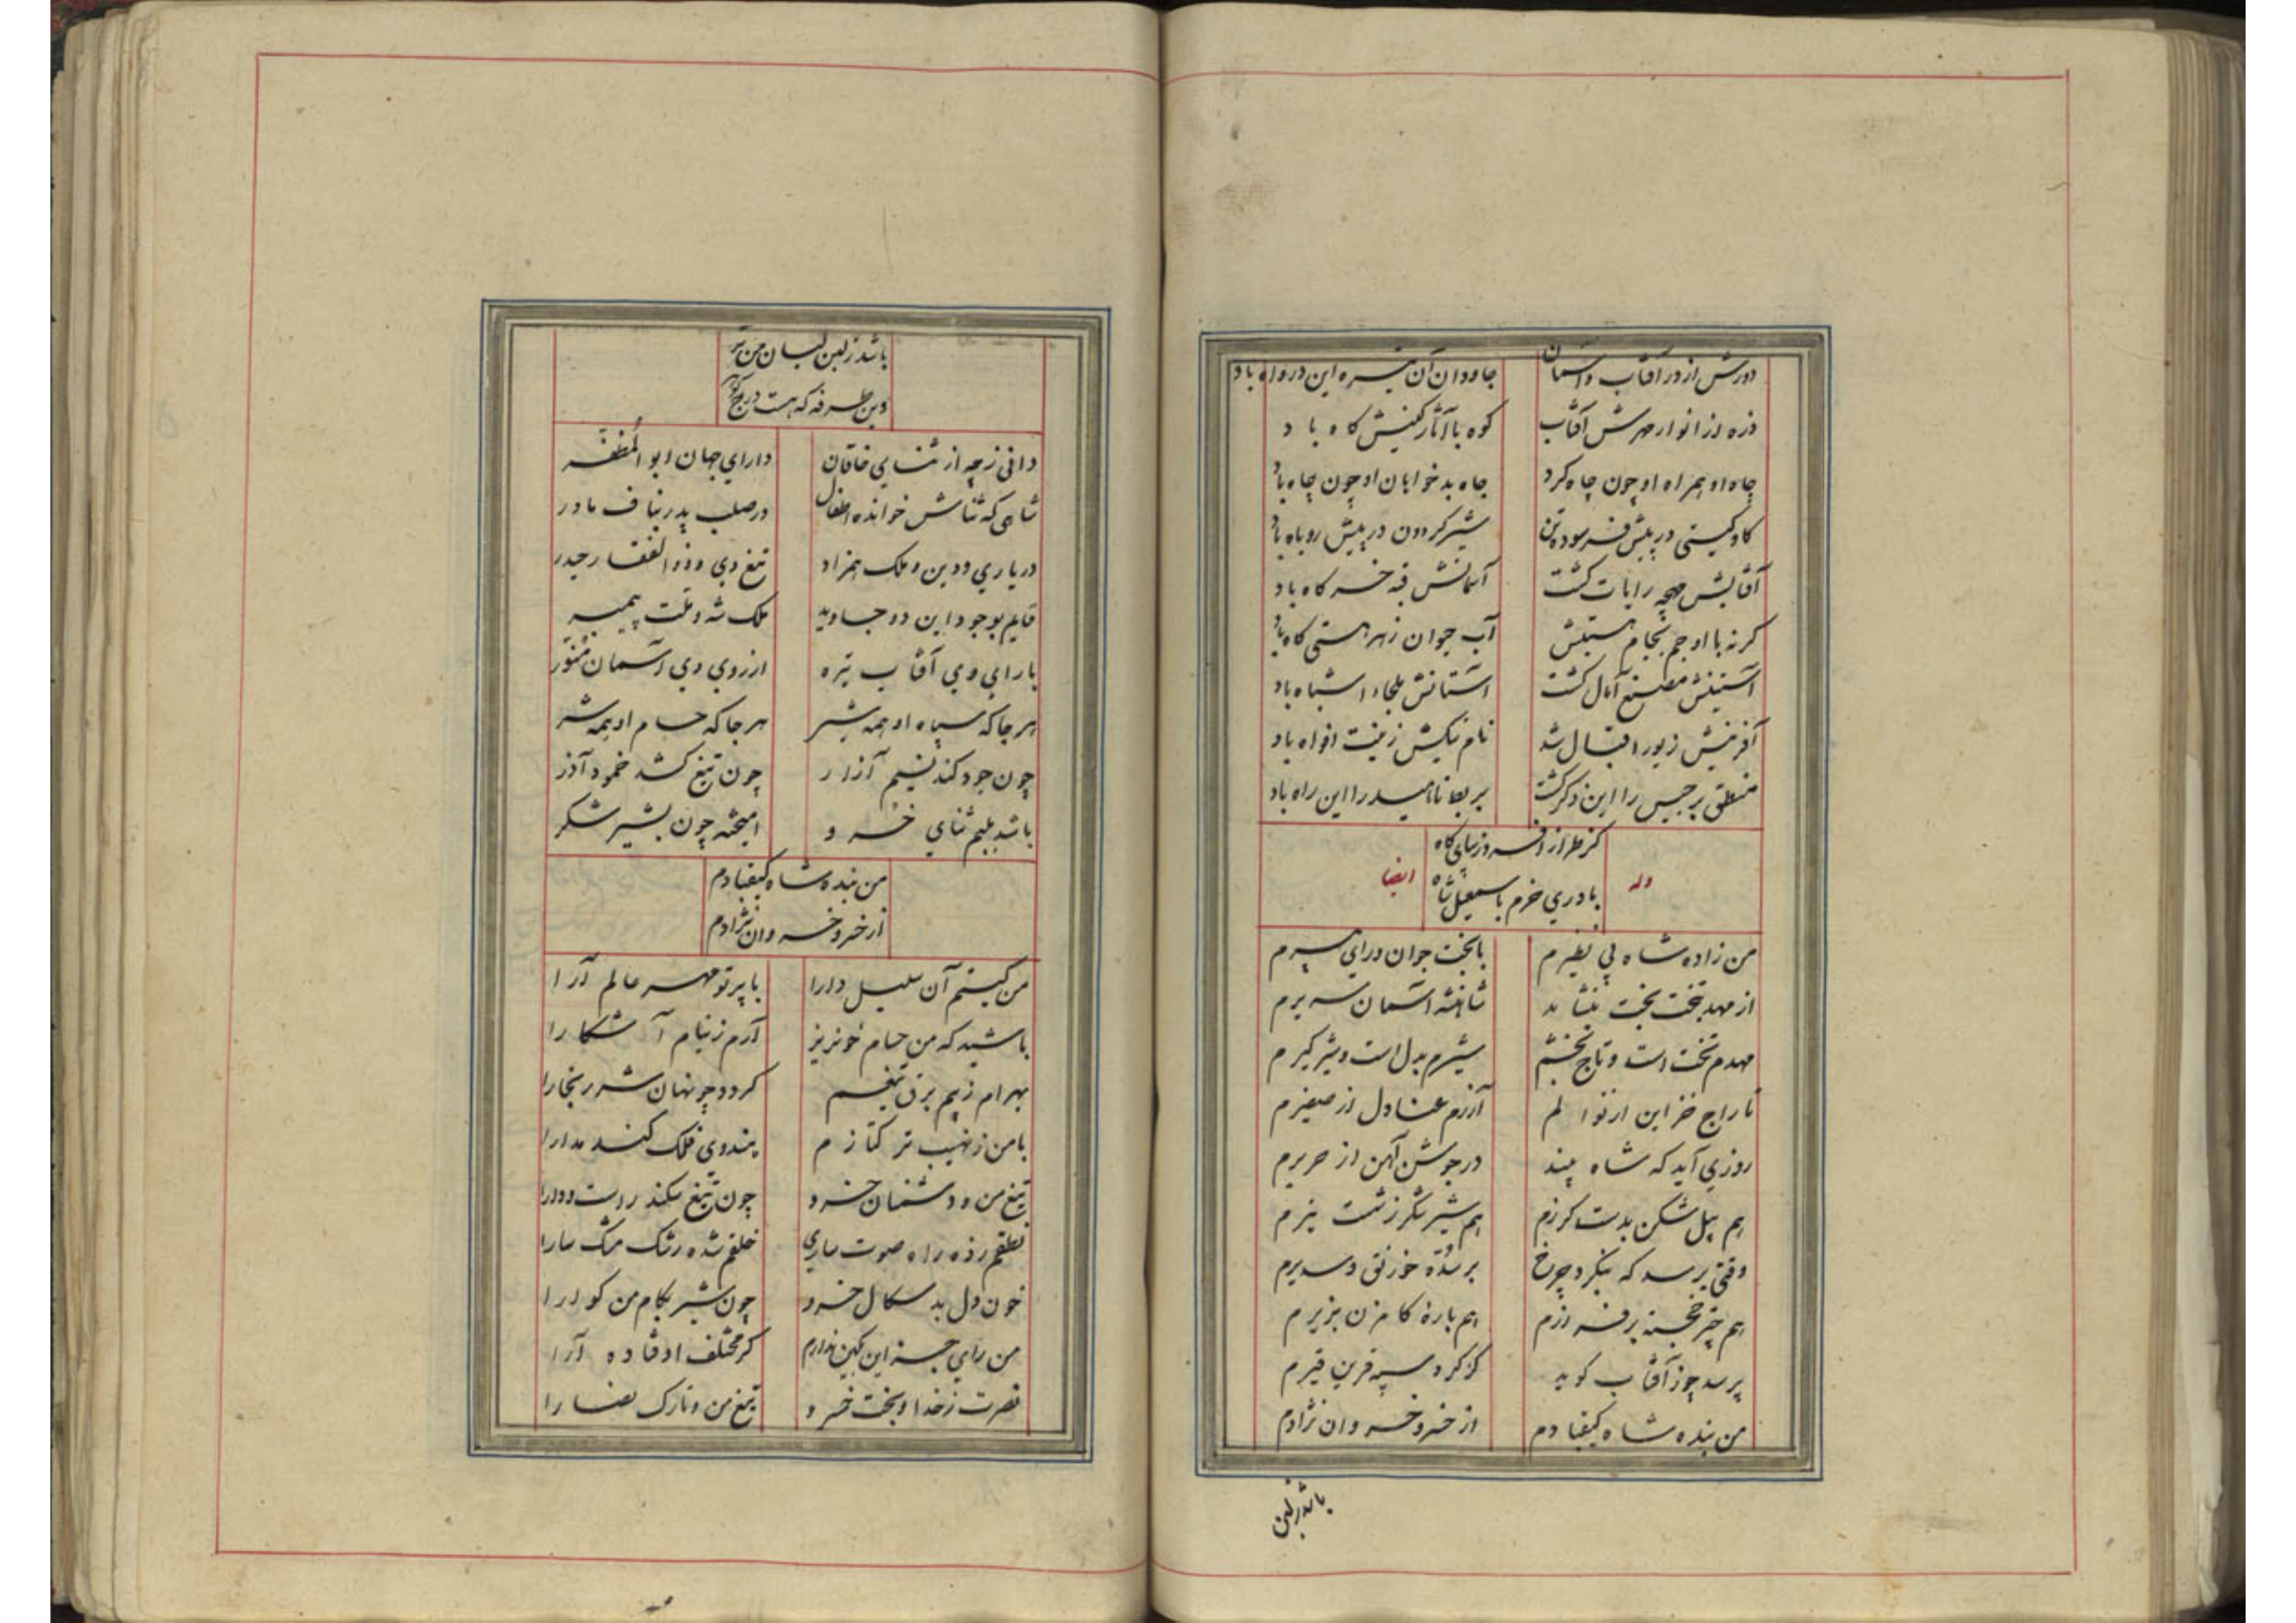 دورش از در آفتاب و آسمان جاودان آن خیره این در واه باد
ذره از انوار مهرش آفتاب کوه با آثار کینش کاه باد
جاه او همراه او چون چاه کرد جاه بدخواهان او چون چاه باد
کاو کیتی در پیش فرسوده تن شیر کردون در پیش روباه باد
آفتابش مهچه رایات کشت آسمانش قبه خرکاه باد
کرنه با او جم بجام هستیش آب حیوان زهر هستی کاه باد
آستینش مصنع آمال کشت آستانش ملجاء اشباه باد
آفرینش زیور اقبال شد نام نیکش زینت افواه باد
منطق برجیس را این ذکر کشت بربط ناهید را این راه باد
کز طراز افسر و زیبای کاه
وله ایضا
باد ری خرم باسمعیل شاه
من زاده شاه بی نظیرم با بخت جوان و رای پیرم
از مهد بتخت بخت بنشاند شاهنشه آسمان سریرم
مهدم تخت است و تاج بخشم شیرم بدل است و شیر کیرم
تاراج خزاین از نوالم آزرم عنادل از صفیرم
روزی آید که شاه بیند در جوشن آهن از حریرم
هم پیل شکن بدست کرزم هم شیر شکر ز شست تیرم
وقتی برسد که بنکرد چرخ بر سده خورنق و سدیرم
هم چتر خجسته بر فرازم هم باره کامزن بزیرم
پرسد چو ز آفتاب کوید کز کرد سپه قرین قیرم
من بنده شاه کیقبادم از خسرو خسروان نژادم
باشد زلبن
باشد ز لبن لبان من تر
وین طرفه که هست درج کوهر
دانی ز چه از ثنای خاقان دارای جهان ابو المظفر
شاهی که ثناش خوانده اطفال در صلب پدر بناف مادر
در یاری و دین و ملک همزاد تیغ وی و ذوالفقار حیدر
قایم بوجود این دو جاوید ملک شه و ملت پیمبر
با رای وی آفتاب تیره از روی وی آسمان منور
هر جا که سپاه او همه شیر هر جا که حسام او همه شر
چون جود کند نسیم آزار چون تیغ کشد خمود آذر
باشد بلبم ثنای خسرو امیخته چون بشیر شکر
من بنده شاه کیقبادم
از خسرو خسروان نژادم
من کیستم آن سلیل دارا با پرتو مهر عالم آرا
باشید که من حسام خونریز آرم ز نیام آشکارا
بهرام ز بیم برق تیغم کردد چو نهان شرر بخارا
با من ز نهیب ترکتازم هندوی فلک کند مدارا
تیغ من و دشمنان خسرو چون تیغ سکندر است و دارا
نطقم زده راه صوت ساری خلقم شده رشک مشک سارا
خون دل بدسکال خسرو چون شیر بکام من کوارا
من رای جز این کهین ندارم کر مختلف اوفتاده آرا
نصرت ز خدا و بخت خسرو تیغ من و تارک نصارا